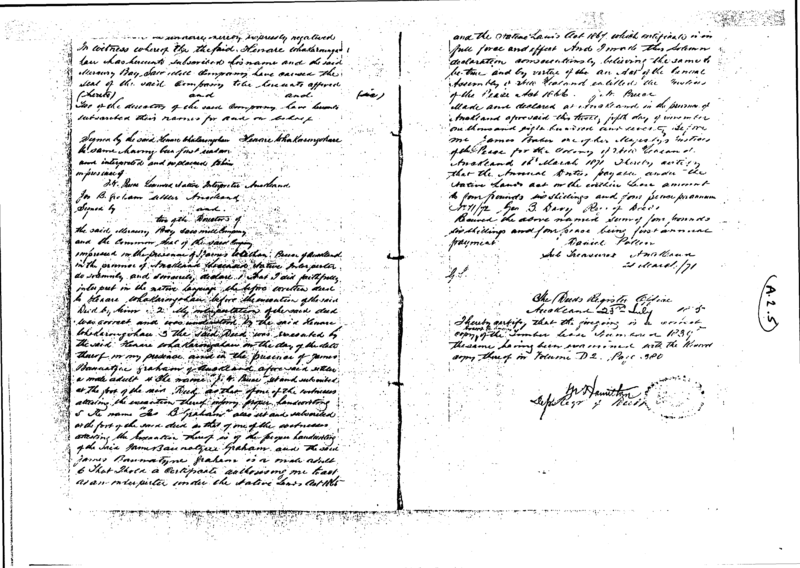 hereby expressly negatived
In witness whereof the said Henare Whakarongohau
has hereunto subscribed his name and the said
Mercury Bay Saw Mill Company have caused the
Seal of the said Company to be hereunto affixed
(thereto) and and
Two of the directors of the said Company have hereunto
subscribed their names for and on behalf
Signed by the said Henare Whakarongohau Henare Whakarongohau
the same having been first read over
and interpreted and explained to him
in presence of
J. W. Preece Licensed Native Interpreter Auckland
Jas B. Graham Settler Auckland
Signed by and
two of the Directors of
the said Mercury Bay Saw mill Company
and the Common Seal of the said Company
impressed in the presence of I James Preece of Auckland
in the province of Auckland Licensed Native Interpreter
do solemnly and sincerely declare 1 That I did faithfully
interpret in the native language the before written deed
to Henare Whakarongohau before the execution of the said
Deed by him 2 My interpretation of the said deed
was correct and was understood by the said Henare
Whakarongohau 3 The said Deed was executed by
the said Henare Whakarongohau on the day of the date
thereof in my presence and in the presence of James
Bannatyne Graham of Auckland aforesaid settler
a male adult 4 The name J. W. Preece set and subscribed
at the foot of the said Deed as that of one of the witnesses
attesting the execution thereof is of my proper handwriting
5 The name "Jas B Graham" also set and subscribed
at the foot of the said deed as that of one of the witnesses
attesting the execution thereof is of the proper handwriting
of the said James Bannatyne Graham and the said
James Bannatyne Graham is a male adult
6 That I hold a Certificate authorising me to act
as an interpreter under the Native Lands Act 1865
and the Native Lands Act 1867 which certificate is in
full force and effect And I make this solemn
declaration conscientiously believing the same to
be true and by virtue of the an Act of the General
Assembly of New Zealand entitled the "Justices
of the Peace Act 1866 J. W. Preece
Made and declared at Auckland in the province of
Auckland aforesaid this twenty fifth day of November
one thousand eight hundred and seventy Before
me James Baber one of her Majesty's Justices
of the Peace for the Colony of New Zealand
Auckland 16th March 1871 I hereby certify
that the Annual Duties payable under the
Native Lands Act on the within lease amount
to four pounds six shillings and four pence per annum
Geo B Davy Reg of Deeds
Received the above named Sum of four pounds
six shillings and four pence being first annual
payment Daniel Pollen
Sub Treasurer Auckland
21 March /71
The Deeds Register Office
Auckland 25th July
I hereby certify that the foregoing is a correct
copy of the
the same having been examined with the Record
copy thereof in Volume D2. Page 380
Hamilton
Depy Regr of Deeds
(A 2.5)